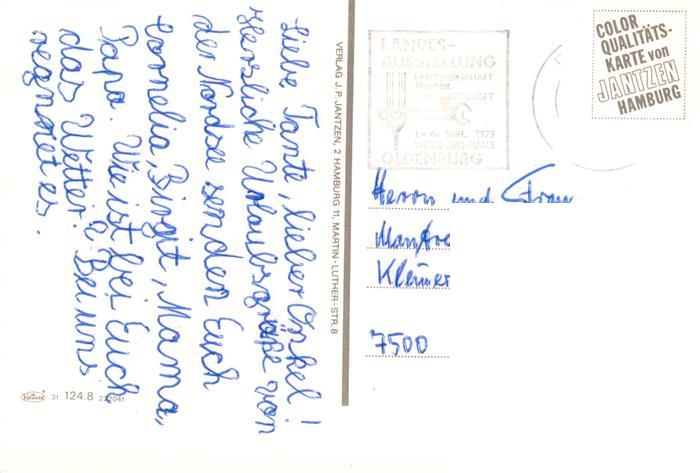 Liebe Tante, lieber Onkel!
Herzliche Urlaubsgrüße von
der Nordsee senden Euch
Cornelia, Birgit, Mama,
Papa. Wie ist bei Euch
das Wetter? Bei uns
regnet es.
VERLAG J. P. JANTZEN, 2 HAMBURG 11, MARTIN-LUTHER-STR. 8
31 124.8 222041
LANDES-
AUSSTELLUNG
LANDWIRTSCHAFT
TECHNIK
1.-6. SEPT. 1979
WESER-EMS-HALLE
OLDENBURG
COLOR
QUALITÄTS-
KARTE von
JANTZEN
HAMBURG
Herrn und Frau
7500